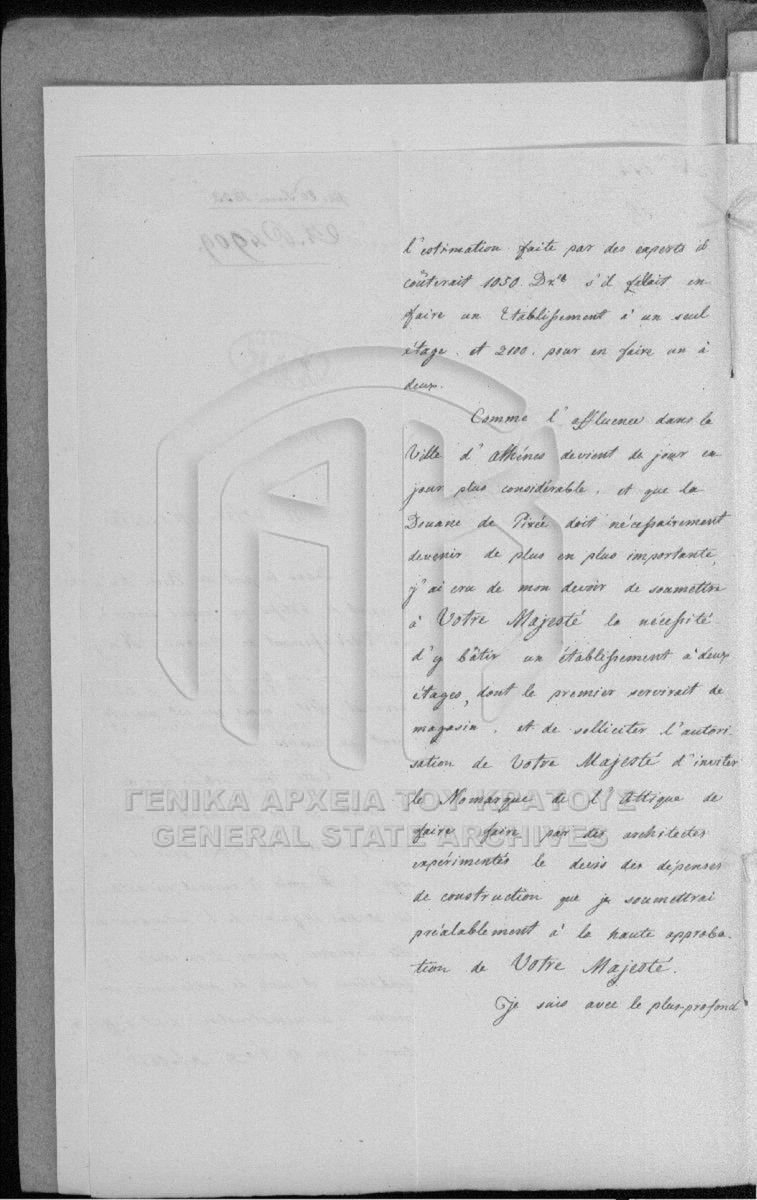 l'estimation faite par des experts il
coûterait 1050 Drs s'il fallait en
faire un Etablissement à un seul
étage. et 2100. pour en faire un à
deux.
Comme l'affluence dans la
Ville d'Athénes devient de jour en
jour plus considérable, et que la
Douane de Pirée doit nécessairement
devenir de plus en plus importante,
j'ai cru de mon devoir de soumettre
à Votre Majesté la nécessité
d'y bâtir un établissement à deux
étages, dont le premier servirait de
magasin, et de solliciter l'autori-
sation de Votre Majesté d'inviter
le Nomarque de l'Attique de
faire faire par des architectes
expérimentés le devis des dépenses
de construction que je soumettrai
préalablement à la haute approba-
tion de Votre Majesté.
Je suis avec le plus profond
ΓΕΝΙΚΑ ΑΡΧΕΙΑ ΤΟΥ ΚΡΑΤΟΥΣ
GENERAL STATE ARCHIVES